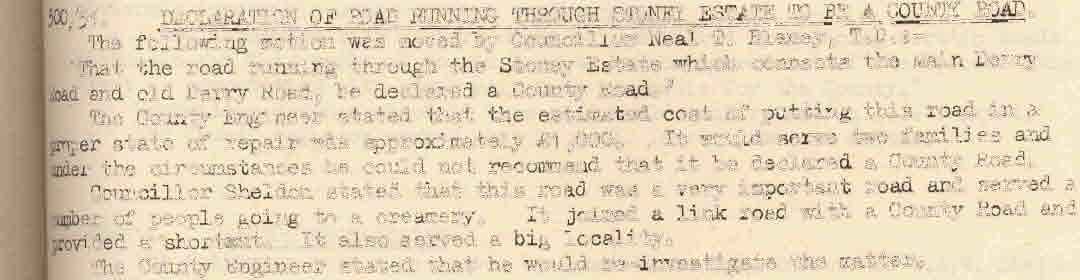 500/54. DECLARATION OF ROAD RUNNING THROUGH STONEY ESTATE TO BE A COUNTY ROAD.
The following motion was moved by Councillor Neal T. Blaney, T.D.:-
"That the road running through the Stoney Estate which connects the Main Derry
Road and old Derry Road, be declared a County Road."
The County Engineer stated that the estimated cost of putting this road in a
proper state of repair was approximately £1,000. It would serve two families and
under the circumstances he could not recommend that it be declared a County Road.
Councillor Sheldon stated that this road was a very important road and served a
number of people going to a creamery. It joined a link road with a County Road and
provided a shortcut. It also served a big locality.
The County Engineer stated that he would re-investigate the matter.